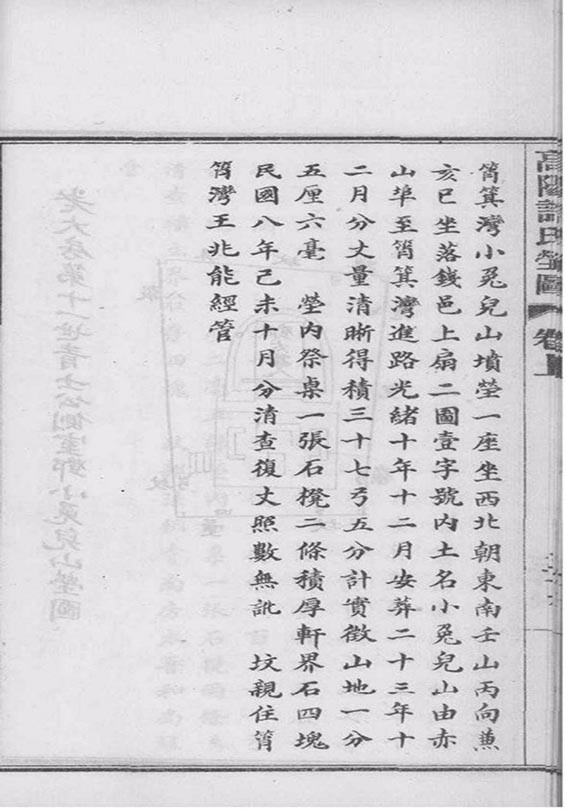 高陽許氏塋圖 卷上
筲箕灣小兔兒山墳塋一座坐西北朝東南壬山丙向兼
亥巳坐落錢邑上扇二圖壹字號內土名小兔兒山由赤
山埠至筲箕灣進路光緒十年十二月安葬二十三年十
二月分丈量清晰得積三十七弓五分計實徵山地一分
五厘六毫　塋內祭桌一張石櫈二條積厚軒界石四塊
民國八年己未十月分清查復丈照數無訛　坟親住筲
筲灣王兆能經管